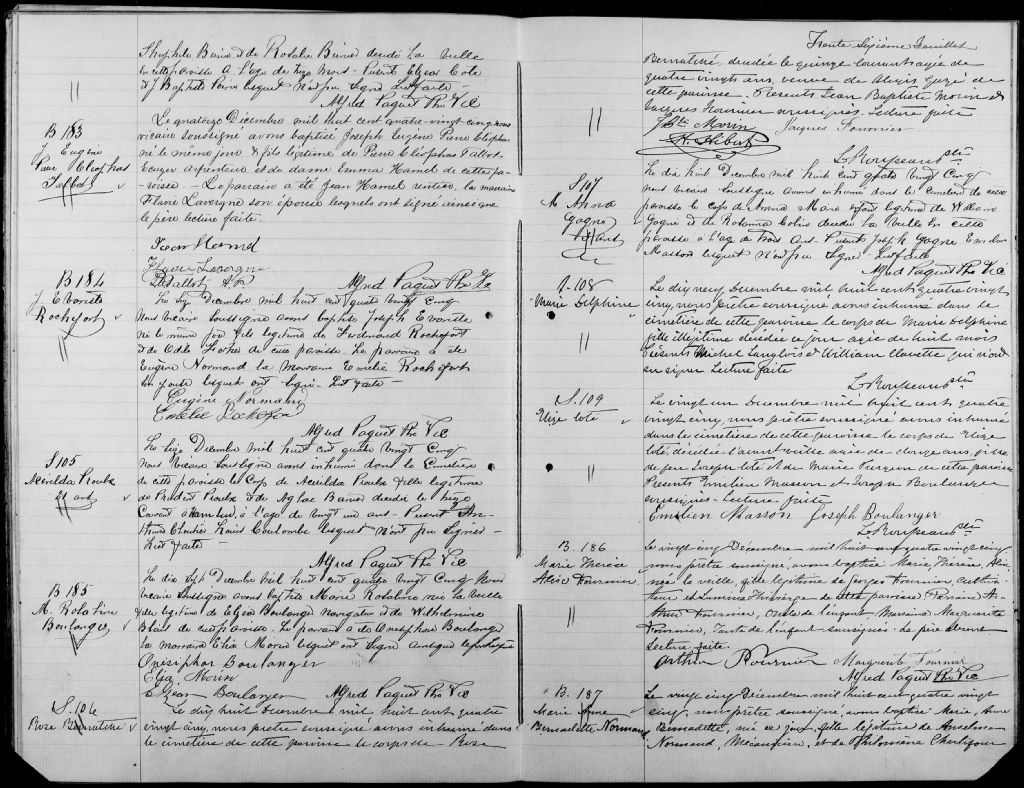 Théophile Binet & de Rosalie Binet décédé la veille
en cette paroisse à l'âge de treize mois - Présents Elzéar Coté
& J Baptiste lesquels n'ont pu signé Lect faite -
Alfred Paquet Ptre Vic
B 183
J. Eugène
Pierre Cléophas
Talbot
Le quatorze Décembre mil huit cent quatre-vingt-cinq, nous
vicaire soussigné avons baptisé Joseph Eugène Pierre Cléophas
né le même jour & fils légitime de Pierre Cléophas Talbot
Ecuyer arpenteur et de dame Emma Hamel de cette pa-
-roisse - Le parrain a été Jean Hamel rentier, la marraine
Flavie Lavergne son épouse lesquels ont signé ainsi que
le père lecture faite.
Jean Hamel
Flavie Lavergne
Talbot A.P.
Alfred Paquet Ptre Vic
B 184
J. Evariste
Rochefort
Le seize Décembre mil huit cent quatre vingt cinq
Nous vicaire soussigné avons baptisé Joseph Evariste
né le même jour fils légitime de Ferdinand Rochefort
& de Odile de cette paroisse - Le parrain a été
Eugène Normand la marraine Emélie Rochefort
lesquels ont signé. Lect faite -
Eugène Normand
Emélie Rochefort
Alfred Paquet Ptre Vic
S 105
Acrilda Proulx
21 ans
Le seize Décembre mil huit cent quatre vingt cinq
Nous vicaire soussigné avons inhumé dans le Cimetière
de cette paroisse le Corps de Acrilda Proulx fille légitime
de Prudent Proulx & de Aglaé décédée le treize
Courant à, à l'âge de vingt un ans - Présents An-
thime Cloutier Louis Coulombe lesquels n'ont pu signer -
Lect faite -
Alfred Paquet Ptre Vic
B 185
M. Rosalire
Boulanger
Le dix sept Décembre mil huit cent quatre vingt cinq Nous
vicaire soussigné avons baptisé Marie née la veille
fille légitime de Elzéar Boulanger navigateur & de Wilhelmine
Blais de cette paroisse. Le parrain a été Onésiphore Boulanger
la marraine Eliza Morin lesquels ont signé
Onésiphor Boulanger
Eliza Morin
Elzéar Boulanger
Alfred Paquet Ptre Vic
S. 106
Rose Bernatché
Le dix huit Décembre mil huit cent quatre
vingt cinq, nous prêtre soussigné avons inhumé dans
le cimetière de cette paroisse le corps de Rose
Trente sixième Feuillet
Bernatché, décédée le quinze courant agée de
quatre vingts ans, veuve de Alexis de
cette paroisse. Présents Jean Baptiste Morin &
Jacques Fournier soussignés. Lecture faite
J Bte Morin
Jacques Fournier
A. Hébert
L. Roupeau ptre
S 107
M. Anna
Gagné
enfant
Le dix huit Décembre mil huit cent quatre vingt cinq
nous vicaire soussigné avons inhumé dans le Cimetière de cette
paroisse le corps de Anna Marie enfant légitime de William
Gagné & de Rosanna Colin décédée la veille en cette
paroisse à l'âge de trois ans - Présents Joseph Gagné Emilien
Masson lesquels n'ont pu signé - Lect faite
Alfred Paquet Ptre Vic
S. 108
Marie Delphine
Le dix neuf Décembre mil huit cent quatre vingt
cinq, nous prêtre soussigné avons inhumé dans le
cimetière de cette paroisse le corps de Marie Delphine
fille illégitime décédée ce jour agée de huit mois
Présents Michel Langlois et William Clavette qui n'ont
su signer Lecture faite
L. Roupeau ptre
S. 109
Elize Coté
Le vingt un Décembre mil huit cent quatre
vingt cinq, nous prêtre soussigné avons inhumé
dans le cimetière de cette paroisse le corps de Elize
Coté, décédée l'avant veille agée de douze ans, fille
de feu Joseph Coté et de Marie de cette paroisse
Présents Emilien Masson et Joseph Boulanger
soussignés - Lecture faite
Emilien Masson Joseph Boulanger
L. Roupeau ptre
B. 186
Marie Thérèse
Alice Fournier
Le vingt cinq Décembre mil huit cent quatre vingt cinq
nous prêtre soussigné, avons baptisé Marie, Thérèse, Alice,
née la veille, fille légitime de Georges Fournier, cultiva-
teur et Lumina Théberge de cette paroisse Parrain Ar-
thur Fournier, oncle de l'enfant - Marraine Marguerite
Fournier, tante de l'enfant soussignés. Le père absent
Lecture faite.
Arthur Fournier Marguerite Fournier
Alfred Paquet Ptre Vic
B. 187
Marie Anne
Bernadette Normand
Le vingt cinq Décembre mil huit cent quatre vingt
cinq, nous prêtre soussigné, avons baptisé Marie, Anne
Bernadette, née ce jour, fille légitime de Anselme
Normand, Mécanicien, et de Philomène